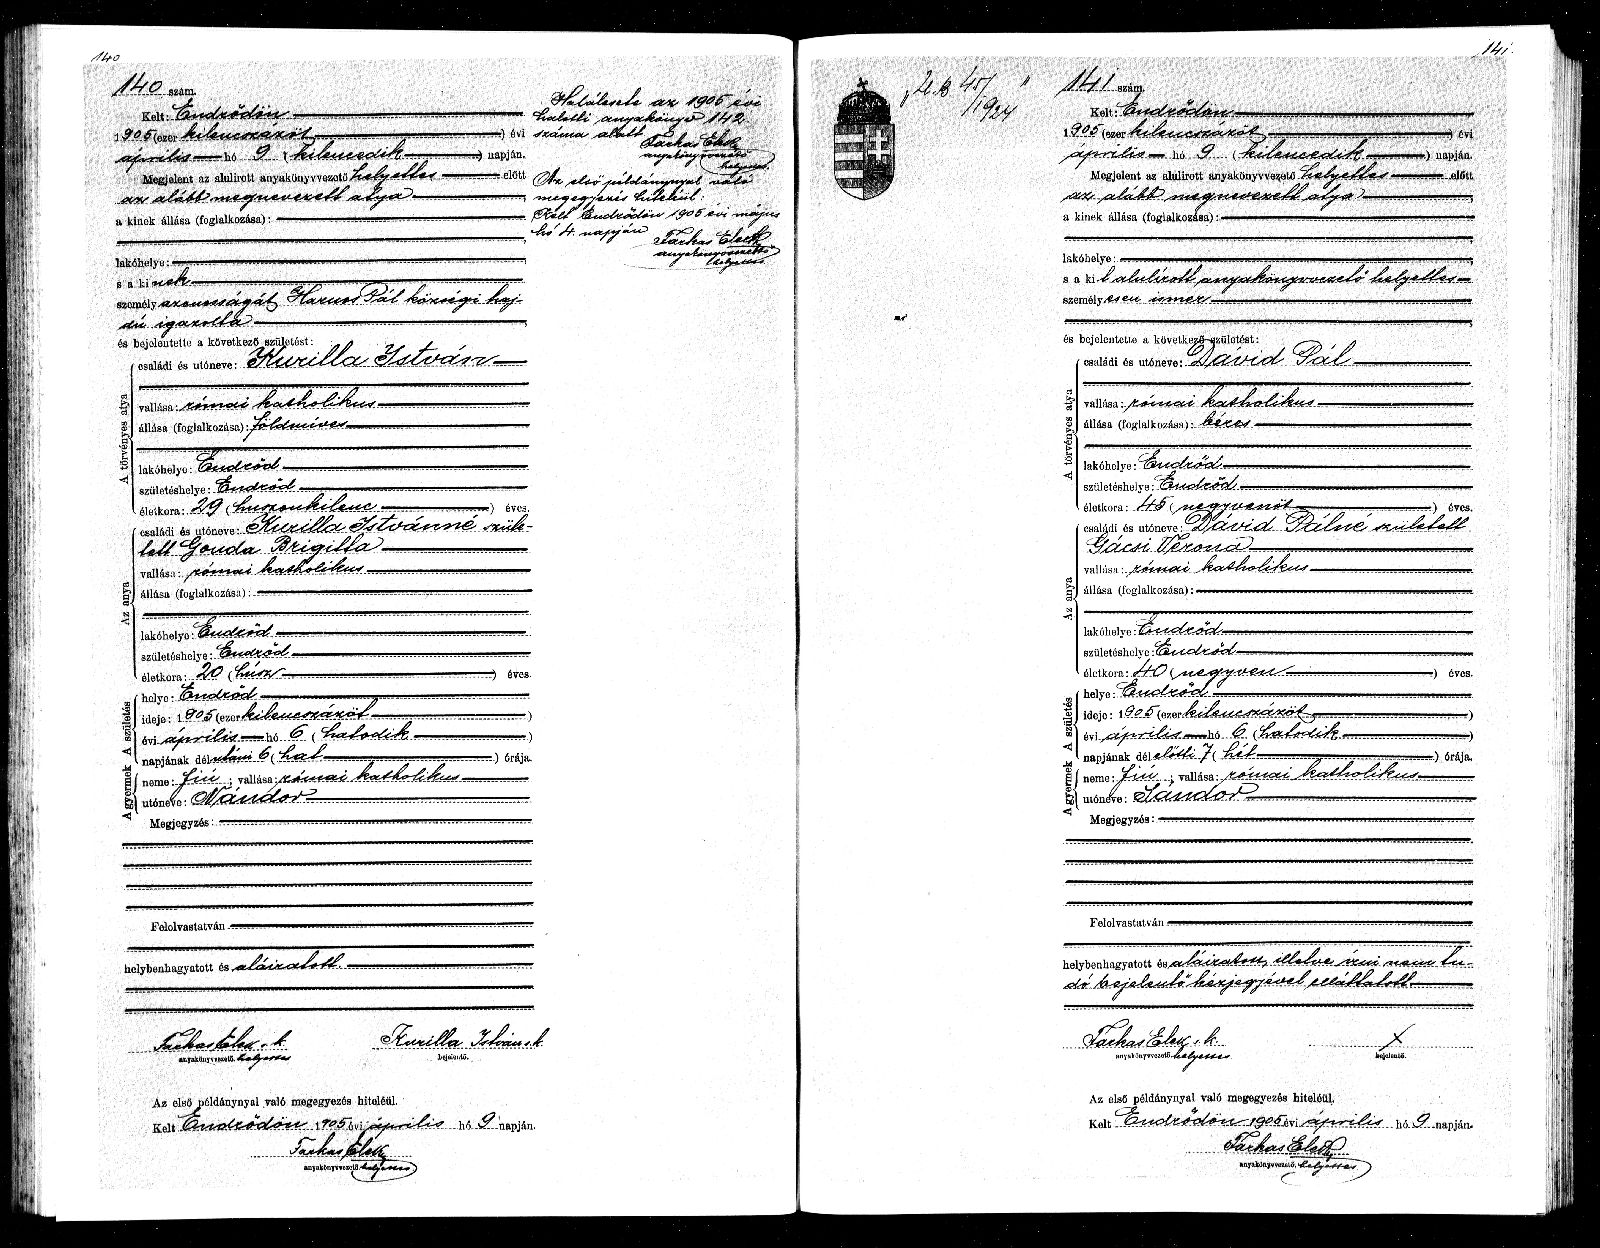 140
140 szám.
Kelt: Endrődön
1905 (ezer kilenczszázöt) évi
április hó 9 (kilenczedik) napján.
Megjelent az alulirott anyakönyvvezető helyettes előtt
az alább megnevezett atya
a kinek állása (foglalkozása):
lakóhelye:
s a kinek
személyazonosságát Harnos Pál községi haj-
dú igazolta
és bejelentette a következő születést:
A törvényes atya
családi és utóneve: Kurilla István
vallása: római katholikus
állása (foglalkozása): földmíves
lakóhelye: Endrőd
születéshelye: Endrőd
életkora: 29 (huszonkilenc) éves.
Az anya
családi és utóneve: Kurilla Istvánné szüle-
tett Gonda Brigitta
vallása: római katholikus
állása (foglalkozása):
lakóhelye: Endrőd
születéshelye: Endrőd
életkora: 20 (húsz) éves.
A születés
helye: Endrőd
ideje: 1905 (ezer kilenczszázöt)
évi április hó 6 (hatodik)
napjának délutáni 6 (hat) órája.
A gyermek
neme: fiú; vallása: római katholikus
utóneve: Nándor
Megjegyzés:
Felolvastatván
helybenhagyatott és aláiratott.
Farkas Elek s. k. Kurilla István s. k.
anyakönyvvezető helyettes bejelentő.
Az első példánynyal való megegyezés hiteléül.
Kelt Endrődön 1905 évi április hó 9 napján.
Farkas Elek
anyakönyvvezető helyettes
Halálesete az 1905 évi
halotti anyakönyv 142
száma alatt
Farkas Elek
anyakönyvvezető
helyettes
Az első példánynyal való
megegyezés hiteléül:
Kelt Endrődön 1905 évi május
hó 4 napján
Farkas Elek
anyakönyvvezető
helyettes
141
141 szám.
Kelt: Endrődön
1905 (ezer kilenczszázöt) évi
április hó 9 (kilenczedik) napján.
Megjelent az alulirott anyakönyvvezető helyettes előtt
az alább megnevezett atya
a kinek állása (foglalkozása):
lakóhelye:
s a kit alulírott anyakönyvvezető helyettes
személyesen ismer
és bejelentette a következő születést:
A törvényes atya
családi és utóneve: Dávid Pál
vallása: római katholikus
állása (foglalkozása): béres
lakóhelye: Endrőd
születéshelye: Endrőd
életkora: 45 (negyvenöt) éves.
Az anya
családi és utóneve: Dávid Pálné született
Gácsi Verona
vallása: római katholikus
állása (foglalkozása):
lakóhelye: Endrőd
születéshelye: Endrőd
életkora: 40 (negyven) éves.
A születés
helye: Endrőd
ideje: 1905 (ezer kilenczszázöt)
évi április hó 6 (hatodik)
napjának délelőtti 7 (hét) órája.
A gyermek
neme: fiú; vallása: római katholikus
utóneve: Sándor
Megjegyzés:
Felolvastatván
helybenhagyatott és aláiratott, illetve írni nem tu-
dó bejelentő kézjegyével elláttatott
Farkas Elek s. k. X
anyakönyvvezető helyettes bejelentő.
Az első példánynyal való megegyezés hiteléül.
Kelt Endrődön 1905 évi április hó 9 napján.
Farkas Elek
anyakönyvvezető helyettes